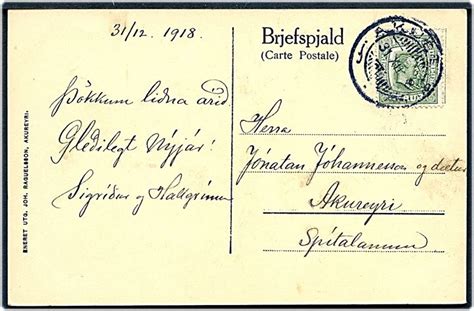 31/12. 1918.
Þökkum liðna árið
Gleðilegt Nýjár!
Sigríður og Hallgrímur
Brjefspjald
(Carte Postale)
Herra
Jónatan Jóhannesson og dætur
Akureyri
Spítalanum
ENERET UTG. JOH. RAGUELSSON, AKUREYRI.